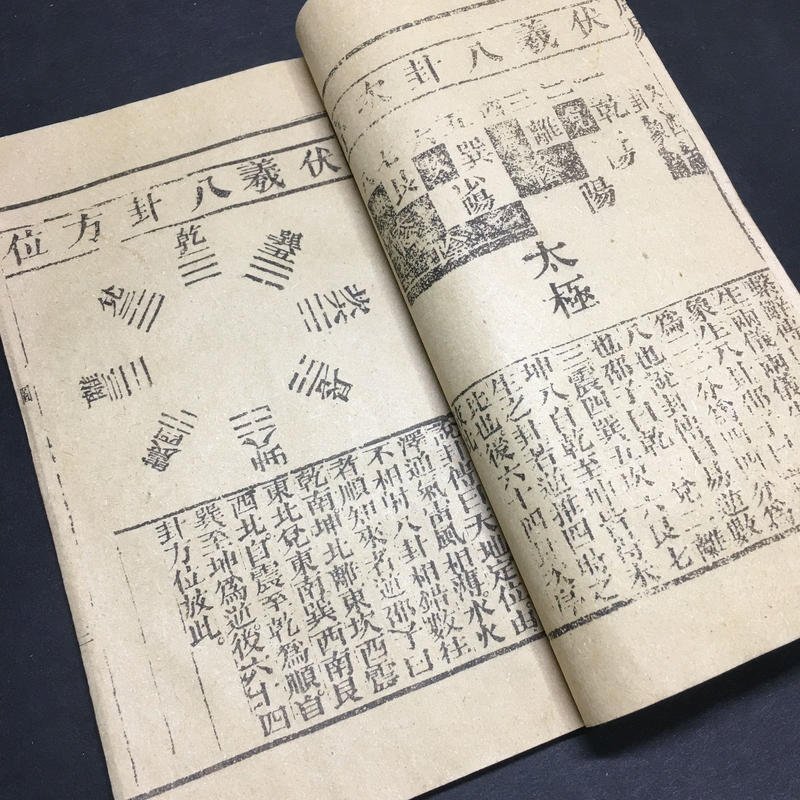 伏羲八卦次
一二三四五六七八
乾
兌
離
巽
艮
卦
陽
少陽
太極
繫辭傳曰
生兩儀兩儀生
象生八卦邵子曰一分
爲二二分爲四四分爲
八也說卦傳曰易逆數
也邵子曰乾一兌二離
三震四巽五坎六艮七
坤八自乾至坤皆得未
生之卦若逆推四時之
比也後六十四卦次序
放此
伏羲八卦方位
乾一
兌二
離三
震四
巽五
坎六
艮七
坤八
說卦傳曰天地定位山
澤通氣雷風相薄水火
不相射八卦相錯數往
者順知來者逆邵子曰
乾南坤北離東坎西震
東北兌東南巽西南艮
西北自震至乾爲順自
巽至坤爲逆後六十四
卦方位放此。